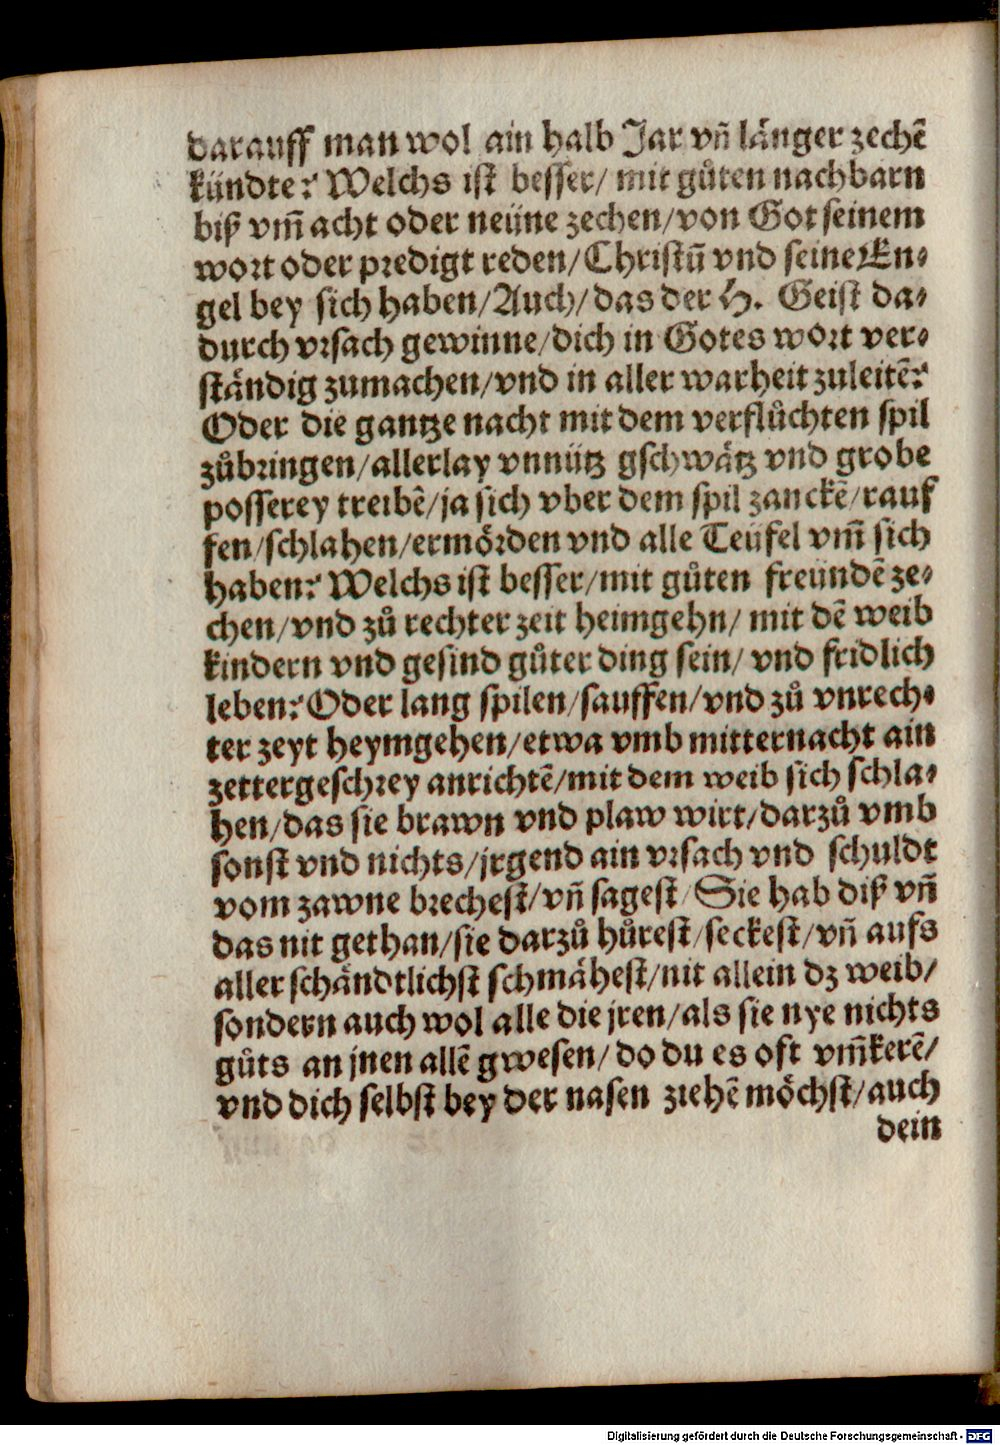 darauff man wol ain halb Jar vn̄ länger zechē
kündte? Welchs ist besser/ mit gůten nachbarn
biß vm̄ acht oder neüne zechen/ von Got seinem
wort oder predigt reden/ Christū vnd seine En⸗
gel bey sich haben/ Auch/ das der H. Geist da⸗
durch vrsach gewinne/ dich in Gotes wort ver⸗
ständig zumachen/ vnd in aller warheit zuleitē?
Oder die gantze nacht mit dem verflůchten spil
zůbringen/ allerlay vnnütz gschwätz vnd grobe
posserey treibē/ ja sich vber dem spil zanckē/ rauf
fen/ schlahen/ ermörden vnd alle Teüfel vm̄ sich
haben? Welchs ist besser/ mit gůten freündē ze⸗
chen/ vnd zů rechter zeit heimgehn/ mit dē weib
kindern vnd gesind gůter ding sein/ vnd fridlich
leben? Oder lang spilen/ sauffen/ vnd zů vnrech⸗
ter zeyt heymgehen/ etwa vmb mitternacht ain
zettergeschrey anrichtē/ mit dem weib sich schla⸗
hen/ das sie brawn vnd plaw wirt/ darzů vmb
sonst vnd nichts/ jrgend ain vrsach vnd schuldt
vom zawne brechest/ vn̄ sagest/ Sie hab diß vn̄
das nit gethan/ sie darzů hůrest/ seckest/ vn̄ aufs
aller schändtlichst schmähest/ nit allein dz weib/
sondern auch wol alle die jren/ als sie nye nichts
gůts an jnen allē gwesen/ do du es oft vm̄kerē/
vnd dich selbst bey der nasen ziehē möchst/ auch
dein
Digitalisierung gefördert durch die Deutsche Forschungsgemeinschaft - DFG